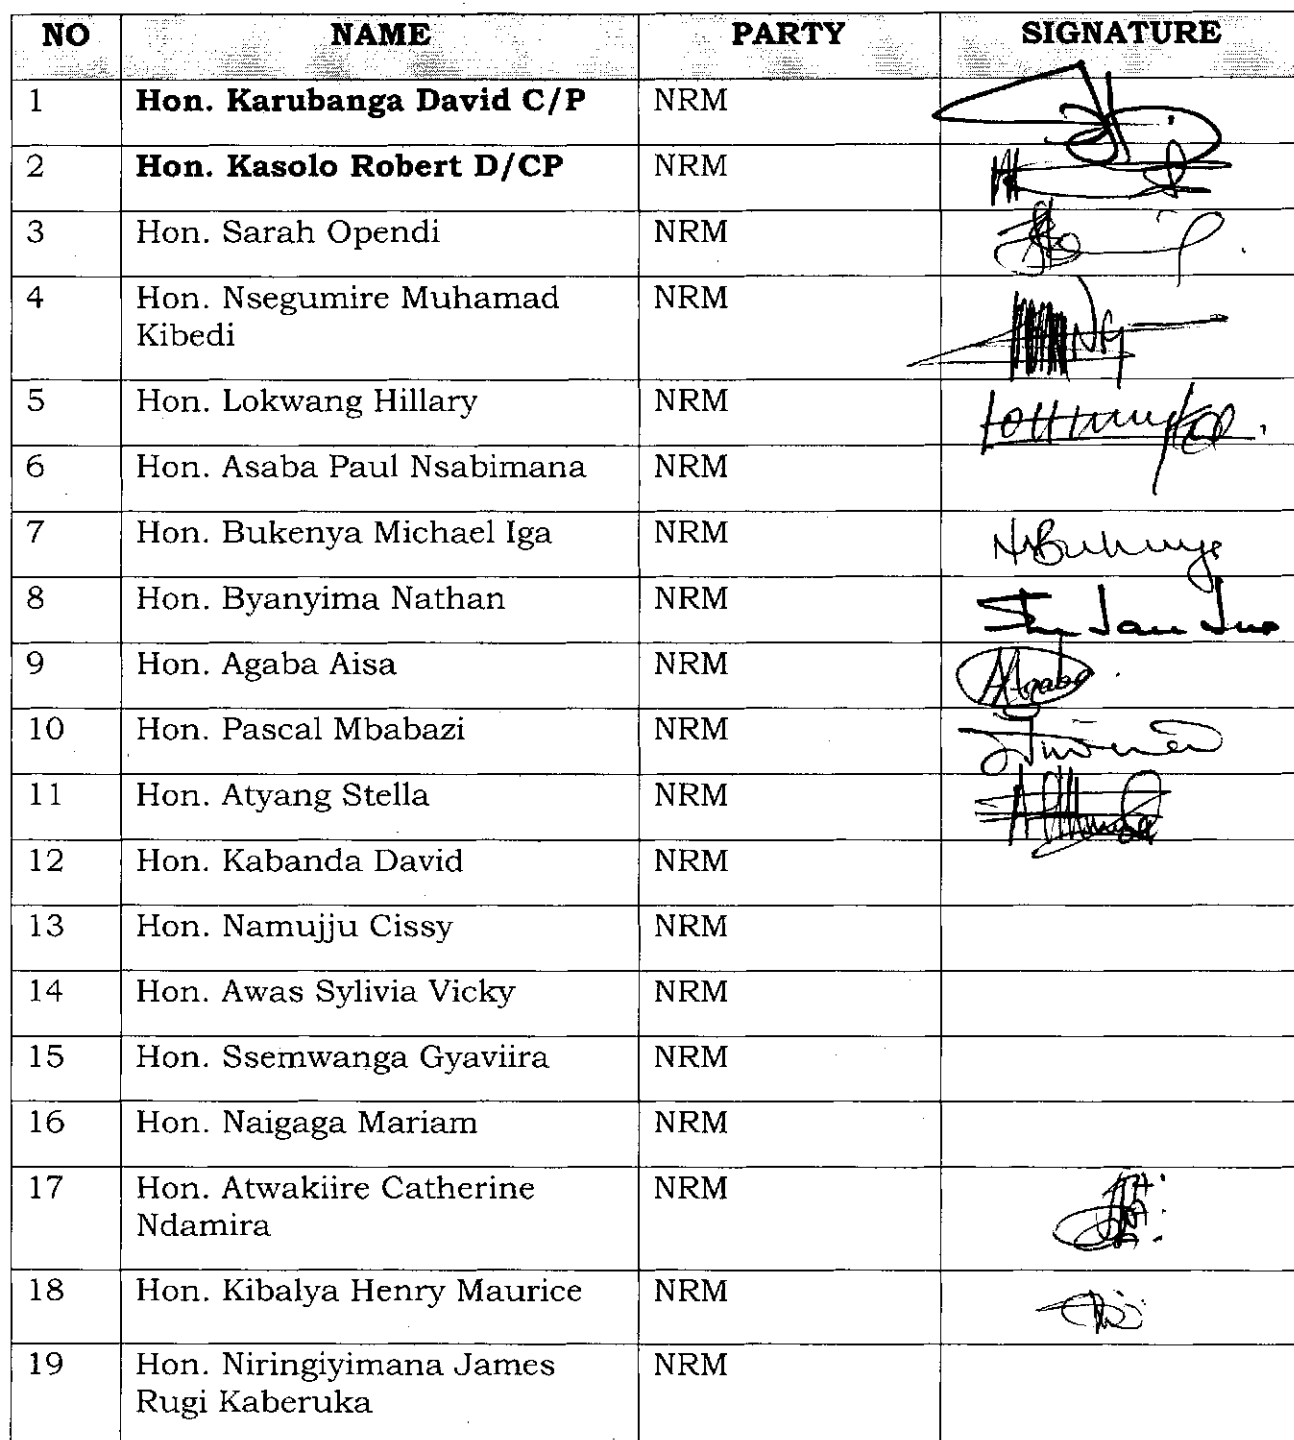 NO NAME PARTY SIGNATURE
1 Hon. Karubanga David C/P NRM
2 Hon. Kasolo Robert D/CP NRM
3 Hon. Sarah Opendi NRM
4 Hon. Nsegumire Muhamad NRM
Kibedi
5 Hon. Lokwang Hillary NRM
6 Hon. Asaba Paul Nsabimana NRM
7 Hon. Bukenya Michael Iga NRM
8 Hon. Byanyima Nathan NRM
9 Hon. Agaba Aisa NRM
10 Hon. Pascal Mbabazi NRM
11 Hon. Atyang Stella NRM
12 Hon. Kabanda David NRM
13 Hon. Namujju Cissy NRM
14 Hon. Awas Sylivia Vicky NRM
15 Hon. Ssemwanga Gyaviira NRM
16 Hon. Naigaga Mariam NRM
17 Hon. Atwakiire Catherine NRM
Ndamira
18 Hon. Kibalya Henry Maurice NRM
19 Hon. Niringiyimana James NRM
Rugi Kaberuka